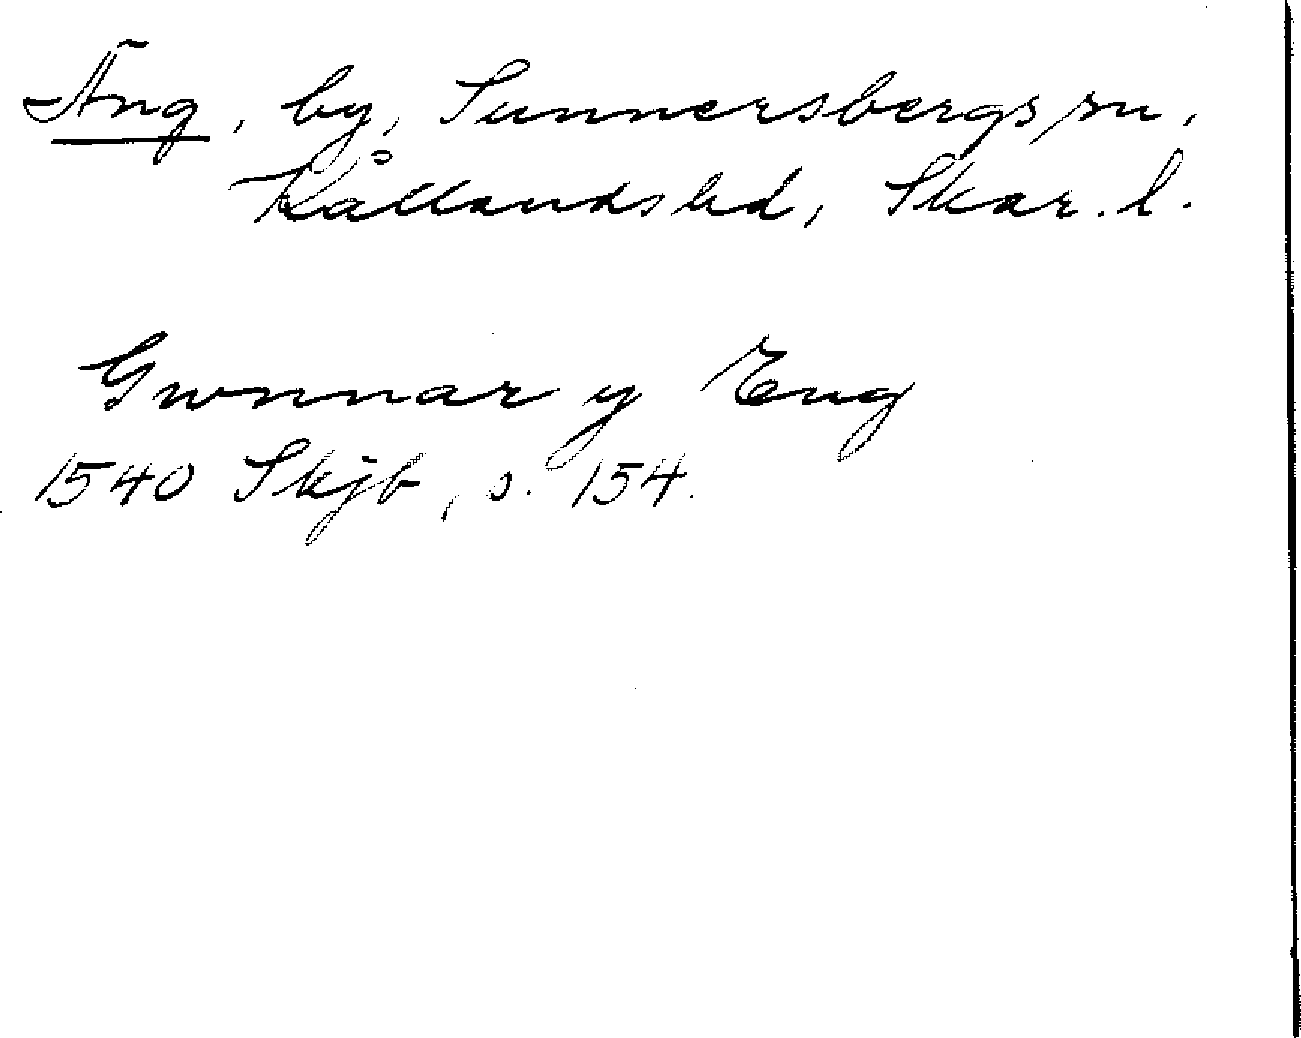 Äng, by, Sunnersbergs sn,
Kållands hd, Skar. l.
Gwnnar y Eng
1540 Skjb, s. 154.